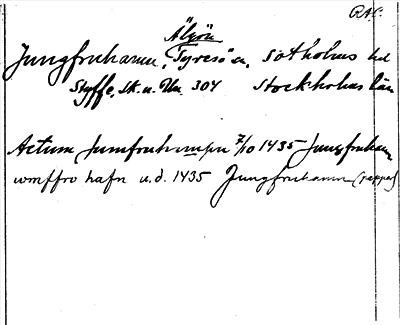 RAC.
Älyön
Jungfruhamn, Tyresö n, Sotholms hd
Styffe, Sk. u. Un. 304 Stockholms län
Actum Jumfruhampn 7/10 1435 Jungfruhamn
iomffro hafn u.d. 1435 Jungfruhamn (rappas)